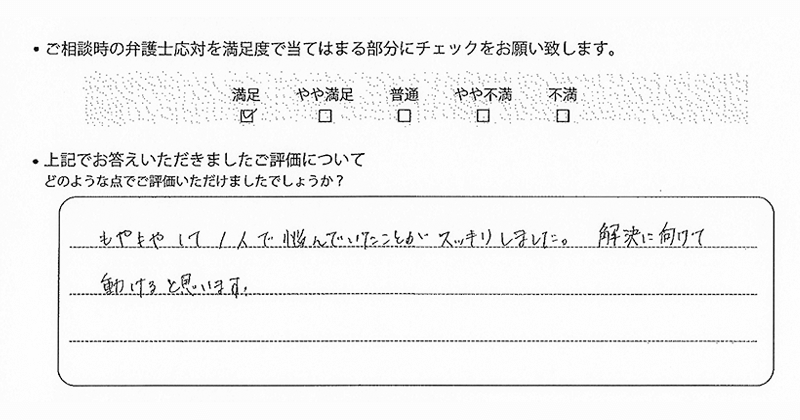 ・ご相談時の弁護士応対を満足度で当てはまる部分にチェックをお願い致します。
満足 やや満足 普通 やや不満 不満
☑ ☐ ☐ ☐ ☐
・上記でお答えいただきましたご評価について
どのような点でご評価いただけましたでしょうか？
もやもやして1人で悩んでいたことがスッキリしました。 解決に向けて
動けると思います。